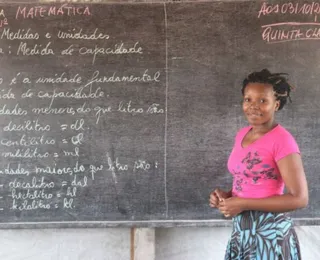 MATEMÁTICA
Aos 03/10/20
Medidas e unidades
QUINTA CLA
: Medida de capacidade
é a unidade fundamental
ida de capacidade.
dades menores do que litro são:
- decilitro = dl.
centilitro = cl
mililitro = ml
dades maiores do que litro são:
- decalitro = dal
- hectolitro = hl
- kilolitro = kl.